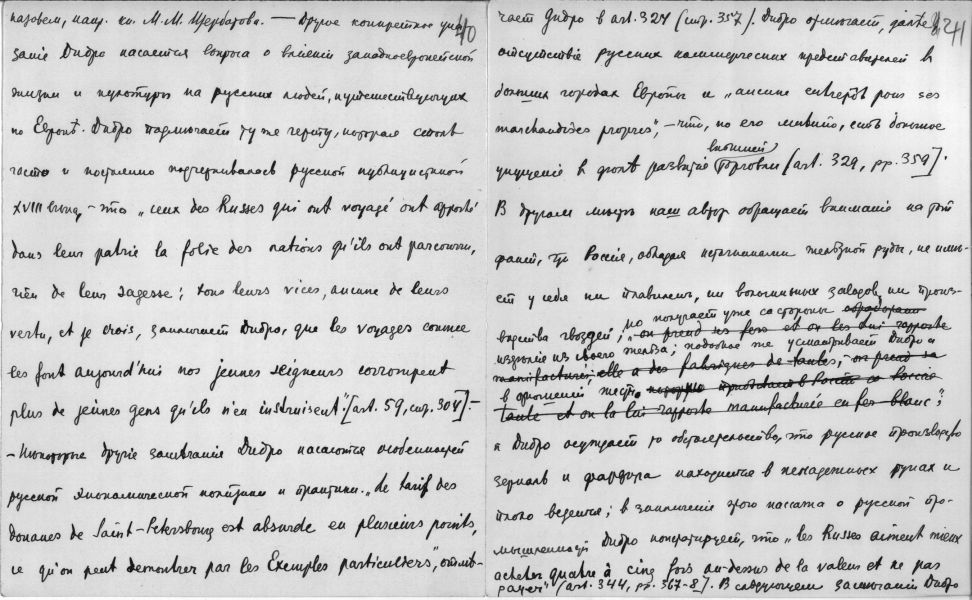 назовем, напр. кн. М. М. Щербатова. — Другое конкретное ука- 40
заніе Дидро касается вопроса о вліяніи западноевропейской
жизни и культуры на русских людей, путешествующих
по Европѣ. Дидро подмѣчает ту же черту, которая столь
часто и постоянно подчеркивалась русской публицистикой
XVIII вѣка, – это „ceux des Russes qui ont voyagé ont apporté
dans leur patrie la folie des nations qu'ils ont parcourues,
rien de leur sagesse; tous leurs vices, aucune de leurs
vertu, et je crois, заключает Дидро, que les voyages comme
les font aujourd'hui nos jeunes seigneurs corrompent
plus de jeunes gens qu'ils n'en instruisent". [art. 59, стр. 304]. –
– Некоторые другие замѣчанія Дидро касаются особенностей
русской экономической политики и практики. „Le tarif des
douanes de Saint-Petersbourg est absurde en plusieurs points,
ce qu'on peut demontrer par les Exemples particuliers", отмѣ-
чает Дидро в art. 324 (стр. 357). Дидро отмѣчает, далѣе, 41
отсутствіе русских коммерческих представителей в
больших городах Европы и „aucuns entrepôts pour ses
marchandises propres", – что, по его мнѣнію, есть большое
внѣшней
упущеніе в дѣлѣ развитія торговли [art. 329, pp. 359].
В другом мѣстѣ наш автор обращает вниманіе на тот
факт, что Россія, обладая источниками желѣзной руды, не имѣ-
ет у себя ни плавилен, ни волочильных заводов, ни произ-
но получает уже со стороны
водства гвоздей; „on prend ses fers et on les lui rapporte
издѣлие из своего желѣза; подобное же усматривает Дидро и
manufacturés; elle a des fabriques de toutes, – on prend sa
в отношеніи жести,
toute et on la lui rapporte manufacturée en fer blanc";
и Дидро осуждает то обстоятельство, что русское производство
зеркал и фарфора находится в ненадежных руках и
плохо ведется; в заключеніе этого пассажа о русской про-
мышленности Дидро констатирует, что „les Russes aiment mieux
acheter quatre à cinq fois au-dessus de la valeur et ne pas
payer" (art. 344, pp. 367-8). В слѣдующем замѣчаніи Дидро